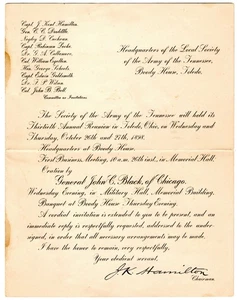 Capt. J. Kent Hamilton
Gen. C. C. Doolittle
Negley D. Cochran
Capt. Robinson Locke
Dr. G. A. Collamore
Col. William Corlett
Hon. George Scheets
Capt. Edwin Goldsmith
Dr. T. C. Wilson
Col. John B. Bell
Committee on Invitations
Headquarters of the Local Society
of the Army of the Tennessee,
Boody House, Toledo.
The Society of the Army of the Tennessee will hold its
Thirtieth Annual Reunion in Toledo, Ohio, on Wednesday and
Thursday, October 26th and 27th, 1898.
Headquarters at Boody House.
First Business Meeting, 10 a.m. 26th inst., in Memorial Hall.
Oration by
General John C. Black, of Chicago.
Wednesday Evening, in Military Hall, Memorial Building.
Banquet at Boody House Thursday Evening.
A cordial invitation is extended to you to be present, and an
immediate reply is respectfully requested, addressed to the under-
signed, in order that all necessary arrangements may be made.
I have the honor to remain, very respectfully,
Your obedient servant,
J K Hamilton
Chairman.